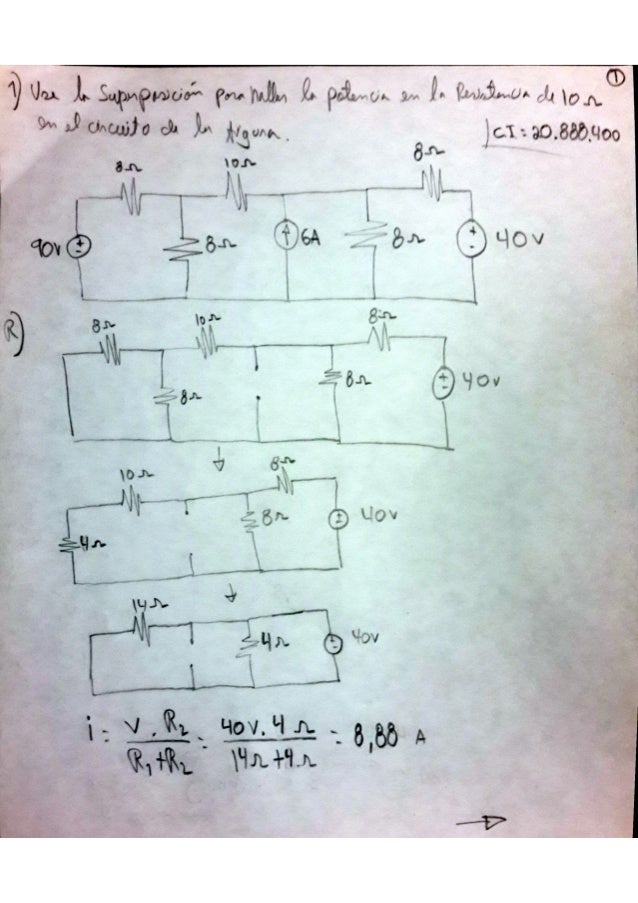 ①
1) Use la Superposición para hallar la potencia en la Resistencia de 10 Ω
en el circuito de la figura.
CI: 20.888.400
8Ω 10Ω 8Ω
90v 8Ω 6A 8Ω 40v
R)
8Ω 10Ω 8Ω
8Ω 8Ω 40v
10Ω 8Ω
4Ω 8Ω 40v
14Ω
4Ω 40v
i = V . R₂ / R₁+R₂ = 40v. 4 Ω / 14Ω+4Ω = 8,88 A